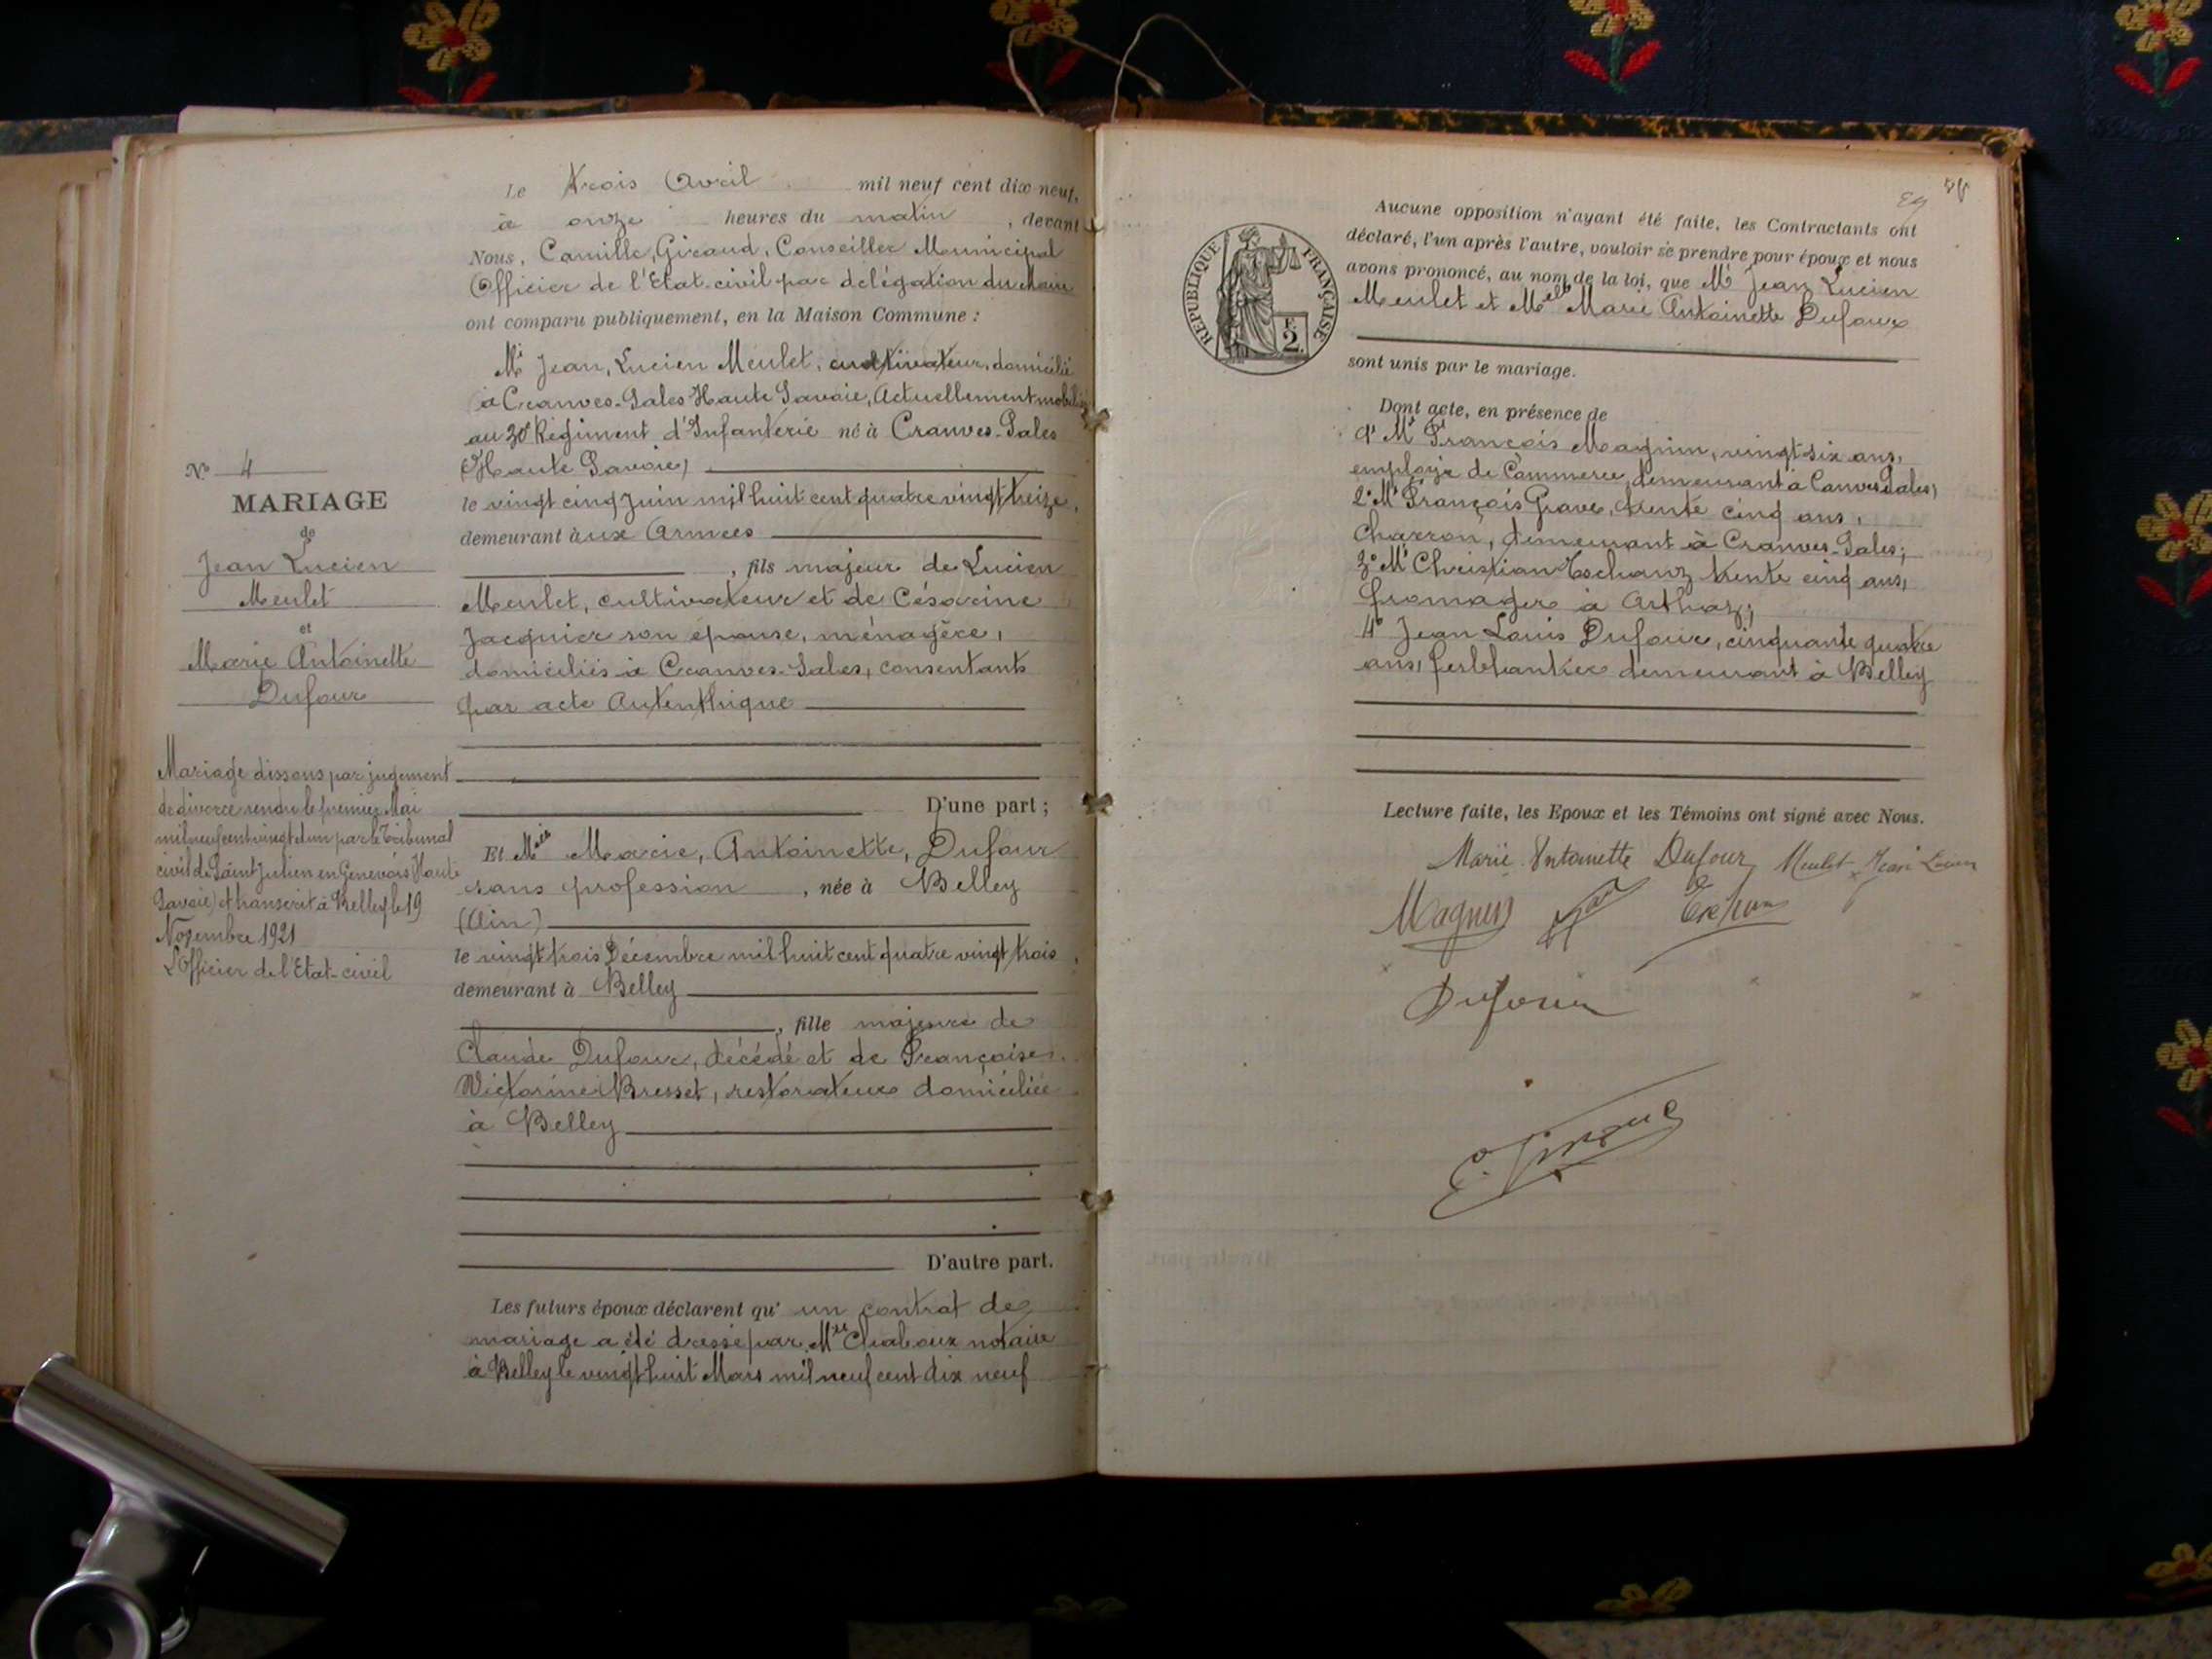 Le trois Avril mil neuf cent dix-neuf,
à onze heures du matin, devant
Nous, Camille, Giraud, Conseiller Municipal
Officier de l'Etat-civil par délégation du Maire
ont comparu publiquement, en la Maison Commune :
Mr Jean, Lucien Meulet, cultivateur, domicilié
à Cranves-Sales Haute Savoie, Actuellement mobilisé
au 30e Régiment d'Infanterie né à Cranves-Sales
(Haute Savoie)
le vingt cinq Juin mil huit cent quatre vingt treize,
demeurant aux Armées
, fils majeur de Lucien
Meulet, cultivateur et de Césarine
Jacquier son épouse, ménagère,
domiciliés à Cranves-Sales, consentants
par acte Autenthique
D'une part ;
Et Melle Marie, Antoinette, Dufour
sans profession, née à Belley
(Ain)
le vingt trois Décembre mil huit cent quatre vingt trois,
demeurant à Belley
, fille majeure de
Claude Dufour, décédé et de Françoise
Victorine Bresset, restorateur domiciliée
à Belley
D'autre part.
Les futurs époux déclarent qu'un contrat de
mariage a été dressé par Me notaire
à Belley le vingt huit Mars mil neuf cent dix neuf
No 4
MARIAGE
de
Jean Lucien
Meulet
et
Marie Antoinette
Dufour
Mariage dissous par jugement
de divorce rendu le premier Mai
mil neuf cent vingt et un par le Tribunal
civil de Saint Julien en Genevois Haute
Savoie) et transcrit à Belley le 19
Novembre 1921
L'Officier de l'Etat-civil
29
RÉPUBLIQUE FRANÇAISE
2F.
Aucune opposition n'ayant été faite, les Contractants ont
déclaré, l'un après l'autre, vouloir se prendre pour époux et nous
avons prononcé, au nom de la loi, que Mr Jean Lucien
Meulet et Melle Marie Antoinette Dufour
sont unis par le mariage.
Dont acte, en présence de
1° Mr François Magnin, vingt-six ans,
employé de Commerce, demeurant à Canves Sales,
2° Mr François Grave, trente cinq ans,
charron, demeurant à Cranves-Sales;
3° Mr Christian Tschanz trente cinq ans,
fromager à Arthaz;
4° Jean Louis Dufour, cinquante quatre
ans, ferblantier demeurant à Belley
Lecture faite, les Epoux et les Témoins ont signé avec Nous.
Marie Antoinette Dufour Meulet Jean Lucien
Magnin
Dufour
C. Giraud